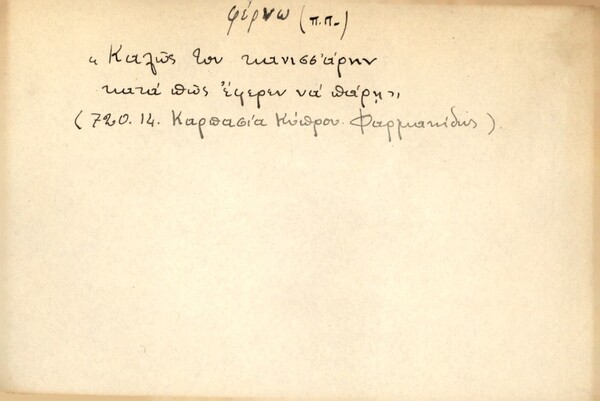 φέρνω (π.π.)
« Καλῶς τον κανισσιάρην
κατά πῶς ἔφερεν νά πάρῃ »,
(720. 14. Καρπασία Κύπρου. Φαρμακίδης).